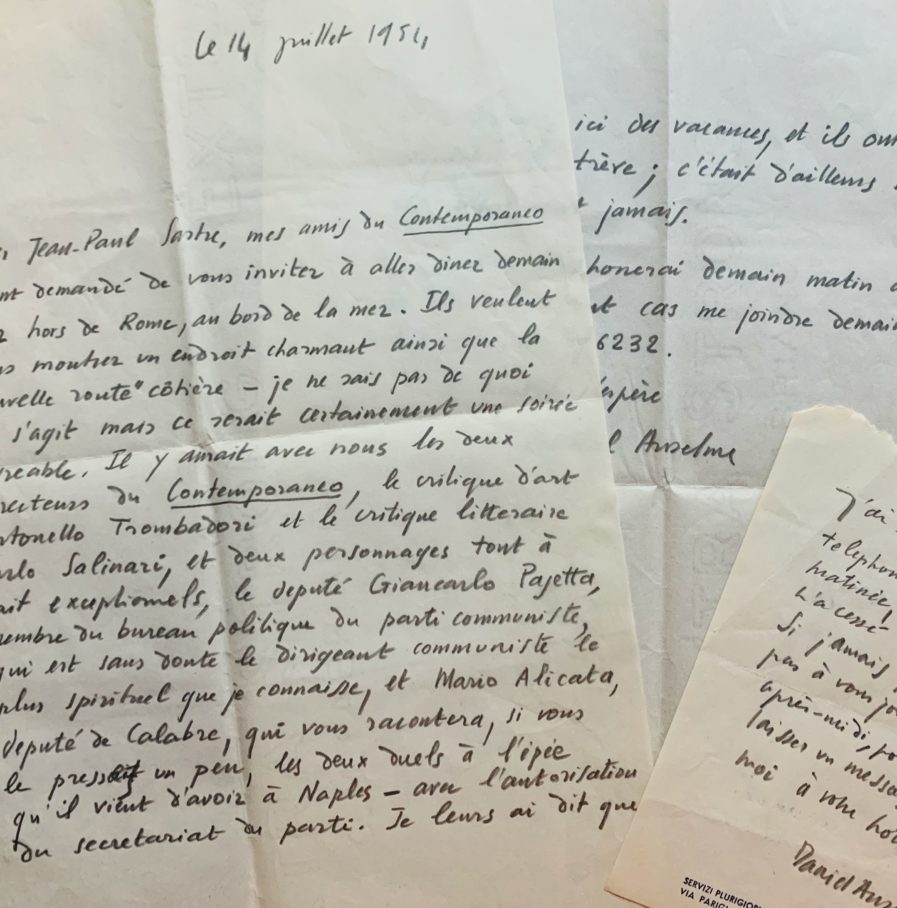 Le 14 juillet 1954
Jean-Paul Sartre, mes amis du Contemporaneo
nt demandé de vous inviter à aller diner demain
hors de Rome, au bord de la mer. Ils veulent
s montrer un endroit charmant ainsi que la
uvelle route" côtière – je ne sais pas de quoi
s'agit mais ce serait certainement une soirée
réable. Il y aurait avec nous les deux
recteurs du Contemporaneo, le critique d'art
ntonello Trombadori et le critique litteraire
rlo Salinari, et deux personnages tout à
ait exceptionnels, le deputé Giancarlo Pajetta,
membre du bureau politique du parti communiste,
qui est sans doute le dirigeant communiste le
plus spirituel que je connaisse, et Mario Alicata,
deputé de Calabre, qui vous racontera, si vous
le pressez un peu, les deux duels à l'épée
qu'il vient d'avoir à Naples – avec l'autorisation
du secretariat du parti. Je leurs ai dit que
ici des vacances, et ils ont
trève ; c'était d'ailleurs
jamais.
honerai demain matin
cas me joindre demain
6232.
espère
l Anselme
J'ai
telephon
matinée,
n'a cessé
Si jamais
pas à vous jo
après-midi, po
laisser un messa
moi à votre hot
Daniel Ans
SERVIZI PLURIGIOR
VIA PARIG